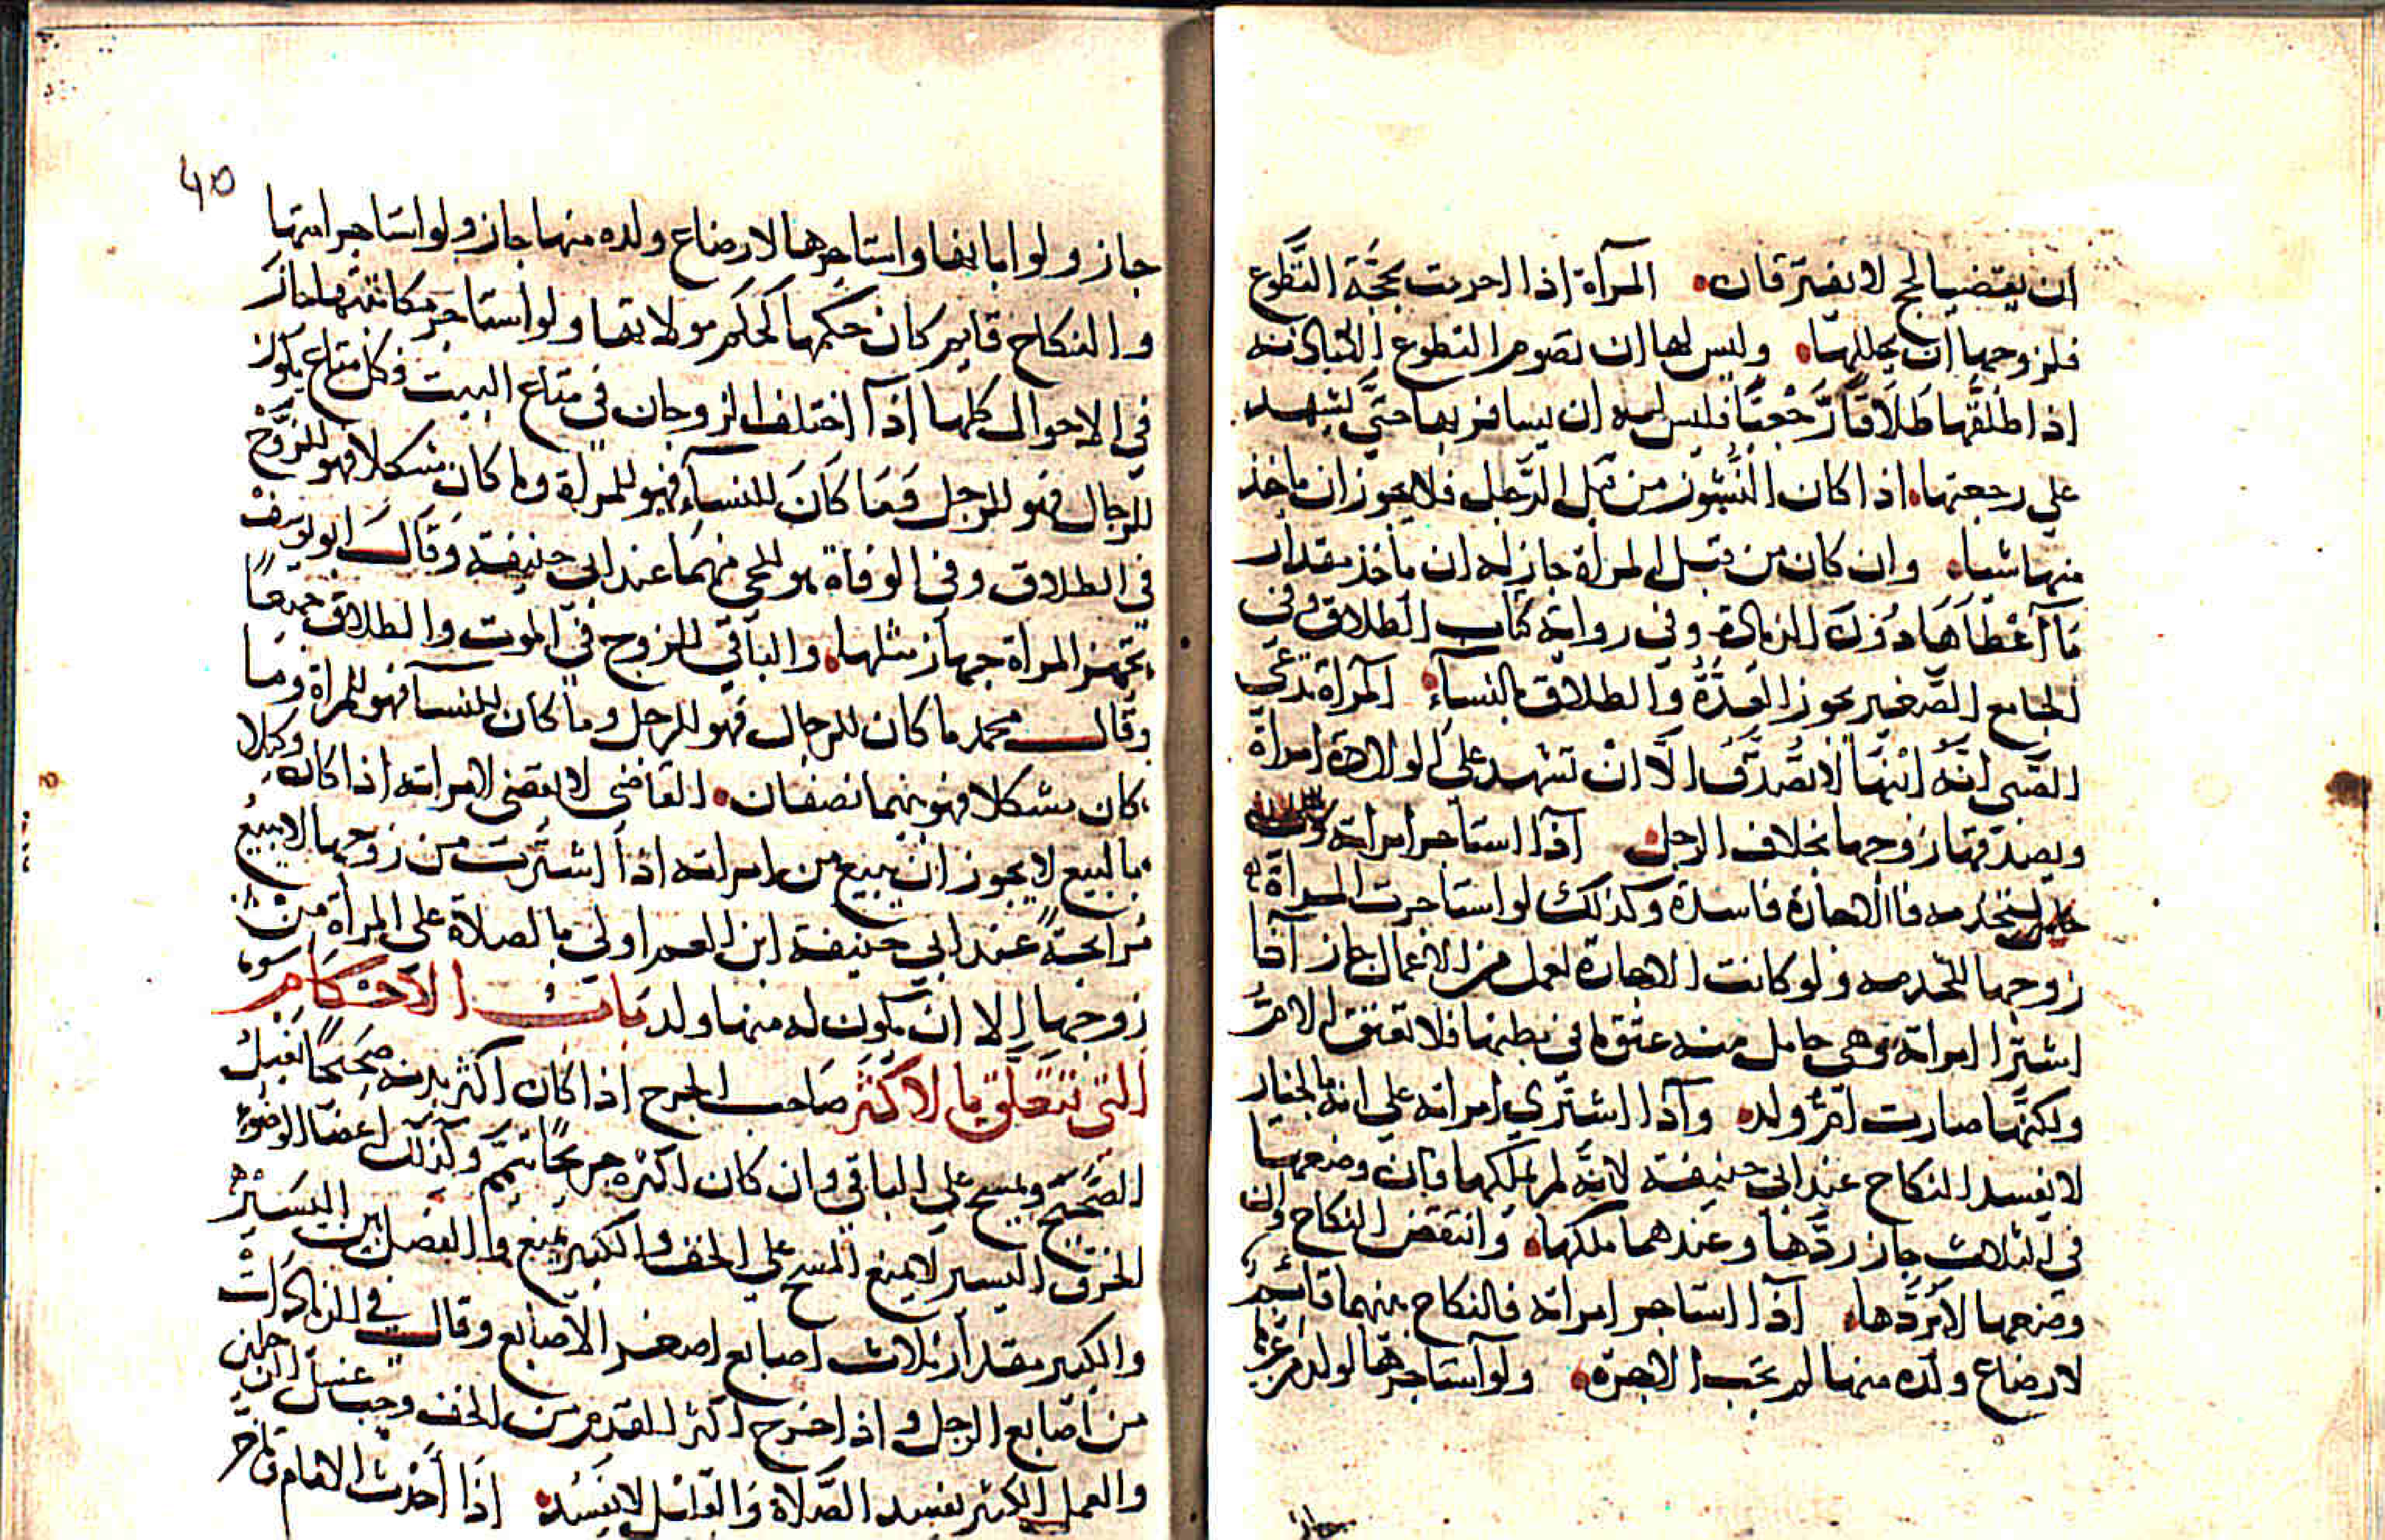 ان يقضيا الحج لا يفترقان المرآة اذا احرمت بحجّة التّطوع
فلزوجها ان يحللها وليس لها ان تصوم التطوع الا باذنه
اذا طلقها طَلَاقًا رَجْعيًّا فليس له ان يسافر بها حتّى يشهد
على رجعتها اذا كان النّشوز من قبل الرّجل فلا يجوز ان ياخذ
منها شيا وان كان من قبل المرأة جاز له ان ياخذ مقدار
مَا آعْطَاهَا دُونَ الزيادة وفي رواية كتاب الطلاق وفي
الجامع الصّغير يجوز العدّة والطلاق بالنسآء المرآة تدّعي
الصّبى انّه ابنها لا تصدّق الّا ان تشهد على الولادة امرأة
ويصدقها زوجها بخلاف الرجل اذا استاجر امراته
ليخدمه فالاجارة فاسدة وكذلك لو استاجرت المرأة
زوجها ليخدمه ولو كانت الاجارة لعمل من الاعمال جاز اذا
اشترا امراته وهي حامل منه عتق ما في بطنها فلا تعتق الامّ
ولكنّها صارت امّ ولد واذا اشترى امراته على انه بالخيار
لا يفسد النكاح عند ابي حنيفة لانّه لم يملكها فان وضعها
في الثلاث جاز ردّها وعندهما ملكها وانتقض النكاح وان
وضعها لا يردّها اذا استاجر امراته فالنكاح بينهما قائم
لارضاع ولده منها لم تجب الاجرة ولو استاجرها لولد من غيرها
جاز
٤٥
جاز ولو ابانها واستاجرها لارضاع ولده منها جاز ولو استاجر امتها
والنكاح قايم كان حكمها كحكم مولاتها ولو استاجر مكاتبتها جاز
في الاحوال كلها اذا اختلف الزوجان في متاع البيت فكل متاع يكون
للرجال فهو للرجل وَمَا كَانَ للنسآء فهو للمرأة وما كان مشكلا فهو للزوج
في الطلاق وفي الوفاة هو للحي منهما عند ابي حنيفة وَقَالَ ابو يوسف
تجهز المراة جهاز مثلها والباقي للزوج في الموت والطلاق جميعًا
وقال محمد ما كان للرجال فهو للرجل وما كان للنسآ فهو للمراة وما
كان مشكلا فهو بينهما نصفان القاضي لا يقضي لامراته اذا كان وكيلا
بالبيع لا يجوز ان يبيع من امراته اذا اشترت من زوجها لا يبيع
مُرابحةً عند ابي حنيفة ابن العم اولى بالصلاة على المرأة من
زوجها الا ان يكون له منها ولد بَابُ الاَحْكَام
الّتى تتعلّق بالاكثر صَاحب الجرح اذا كان اكثر بدنه صَحيحًا يغسل
الصَّحيح ويمسح على الباقي وان كان اكثره جريحًا تيمّم وكذلك اعضآ الوضوء
الخرق اليسير لا يمنع المسح على الخف والكبير يمنع والفصل بين اليَسِير
والكبير مقدار ثلاث اصابع اصغر الاصابع وقال في الزيادات
من اصابع الرجل واذا خرج اكثر القدم من الخف وجب غسل الرجلين
والعمل الكثير يفسد الصّلاة والقليل لا يفسد اذَا أحْدث الامام